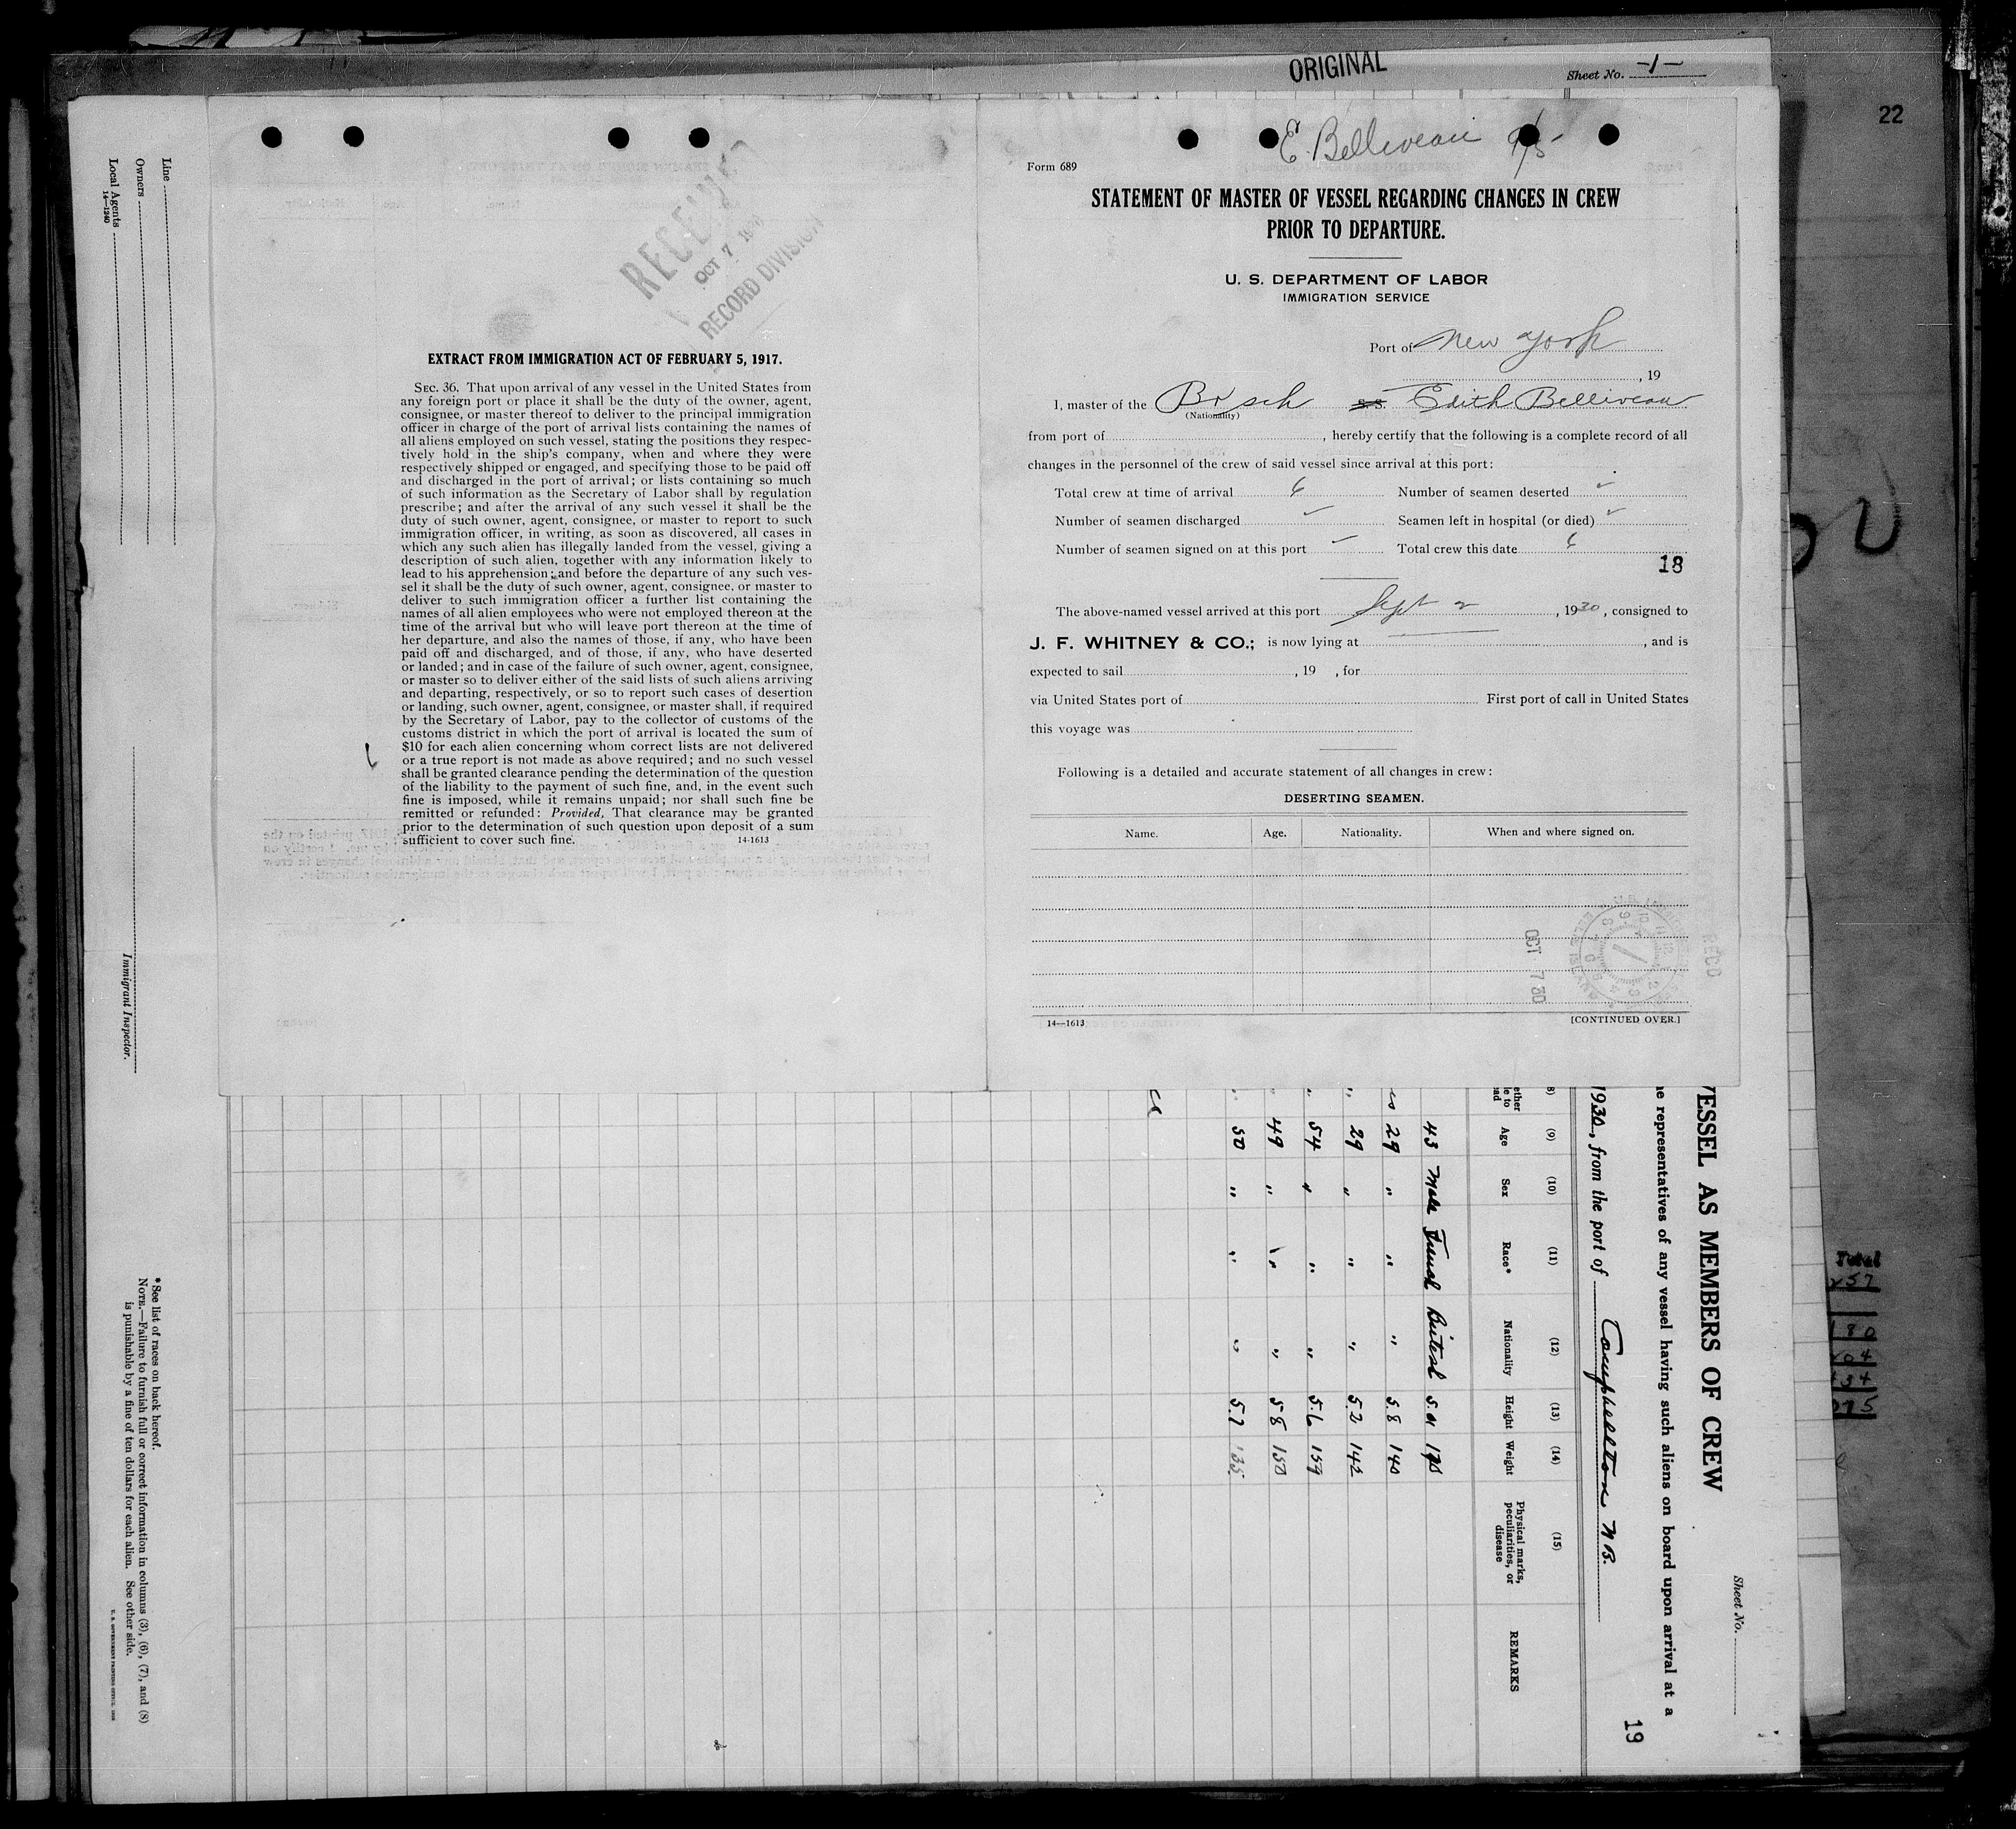 ORIGINAL
Sheet No. -1-
22
E. Belliveau 9/5
Form 689
STATEMENT OF MASTER OF VESSEL REGARDING CHANGES IN CREW
PRIOR TO DEPARTURE.
U. S. DEPARTMENT OF LABOR
IMMIGRATION SERVICE
Port of New York
, 19
I, master of the Br sch S.S. Edith Belliveau
(Nationality)
from port of , hereby certify that the following is a complete record of all
changes in the personnel of the crew of said vessel since arrival at this port:
Total crew at time of arrival 6 Number of seamen deserted ✓
Number of seamen discharged ✓ Seamen left in hospital (or died) ✓
Number of seamen signed on at this port ✓ Total crew this date 6
18
The above-named vessel arrived at this port Sept 2 , 1930 , consigned to
J. F. WHITNEY & CO.; is now lying at , and is
expected to sail , 19 , for
via United States port of First port of call in United States
this voyage was
Following is a detailed and accurate statement of all changes in crew:
DESERTING SEAMEN.
Name. Age. Nationality. When and where signed on.
OCT 7 30
RECD
14—1613
[CONTINUED OVER.]
RECEIVED
OCT 7 1930
RECORD DIVISION
EXTRACT FROM IMMIGRATION ACT OF FEBRUARY 5, 1917.
SEC. 36. That upon arrival of any vessel in the United States from
any foreign port or place it shall be the duty of the owner, agent,
consignee, or master thereof to deliver to the principal immigration
officer in charge of the port of arrival lists containing the names of
all aliens employed on such vessel, stating the positions they respec-
tively hold in the ship's company, when and where they were
respectively shipped or engaged, and specifying those to be paid off
and discharged in the port of arrival; or lists containing so much
of such information as the Secretary of Labor shall by regulation
prescribe; and after the arrival of any such vessel it shall be the
duty of such owner, agent, consignee, or master to report to such
immigration officer, in writing, as soon as discovered, all cases in
which any such alien has illegally landed from the vessel, giving a
description of such alien, together with any information likely to
lead to his apprehension; and before the departure of any such ves-
sel it shall be the duty of such owner, agent, consignee, or master to
deliver to such immigration officer a further list containing the
names of all alien employees who were not employed thereon at the
time of the arrival but who will leave port thereon at the time of
her departure, and also the names of those, if any, who have been
paid off and discharged, and of those, if any, who have deserted
or landed; and in case of the failure of such owner, agent, consignee,
or master so to deliver either of the said lists of such aliens arriving
and departing, respectively, or so to report such cases of desertion
or landing, such owner, agent, consignee, or master shall, if required
by the Secretary of Labor, pay to the collector of customs of the
customs district in which the port of arrival is located the sum of
$10 for each alien concerning whom correct lists are not delivered
or a true report is not made as above required; and no such vessel
shall be granted clearance pending the determination of the question
of the liability to the payment of such fine, and, in the event such
fine is imposed, while it remains unpaid; nor shall such fine be
remitted or refunded: Provided, That clearance may be granted
prior to the determination of such question upon deposit of a sum
sufficient to cover such fine.
14-1613
Sheet No.
19
VESSEL AS MEMBERS OF CREW
representatives of any vessel having such aliens on board upon arrival at a
1930, from the port of Campbellton N.B.
(9) (10) (11) (12) (13) (14) (15)
Age Sex Race* Nationality Height Weight Physical marks, peculiarities, or disease REMARKS
43 Male French British 170
29 " " " 5.8 140
" 29 " " " 5.2 142
" 54 " " " 5.6 159
" 49 " " " 5 8 150
" 50 " " " 5.7 135
Line
Owners
Local Agents
14—1240
Immigrant Inspector.
*See list of races on back hereof.
NOTE.—Failure to furnish full or correct information in columns (3), (6), (7), and (8)
is punishable by a fine of ten dollars for each alien. See other side.
U. S. GOVERNMENT PRINTING OFFICE
Total